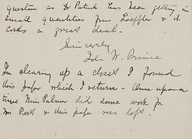 question as Dr Patrick has been getting in
small quantities from Loeffler & it
costs a great deal.
Sincerely
John W.
In clearing up a chest I found
this paper which I return. Once upon a
time Miss Palmer did some work for
Mr and this paper was left.